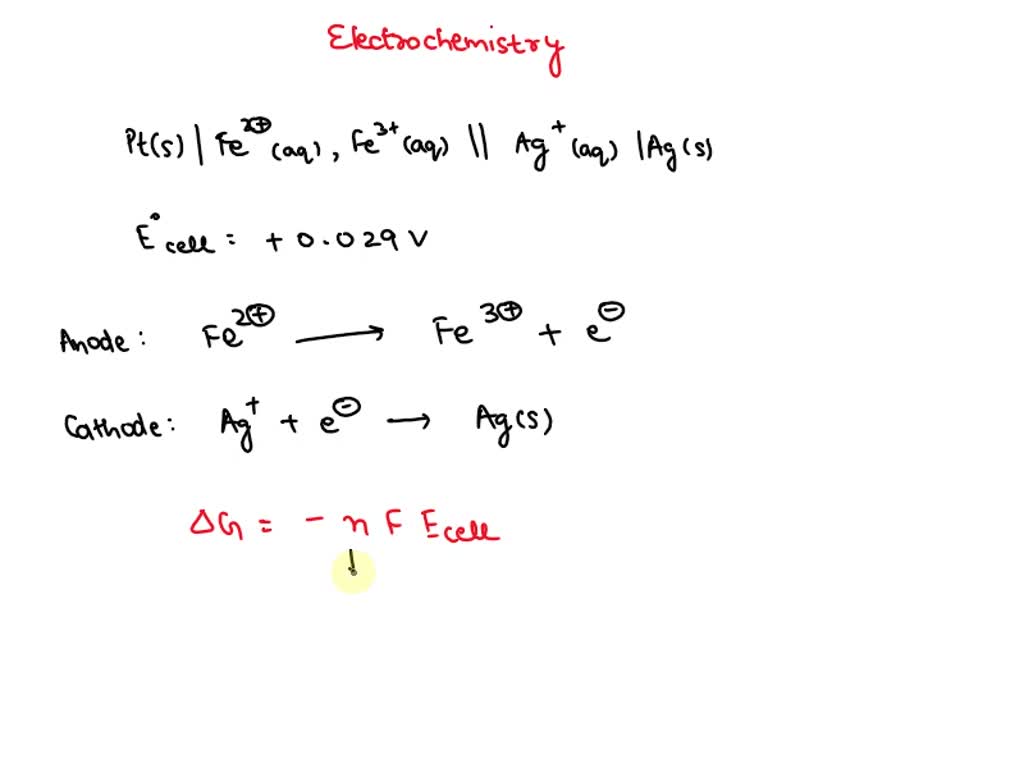 Electrochemistry
Pt(s) | Fe²⊕(aq), Fe³⁺(aq) || Ag⁺(aq) | Ag(s)
E°cell = + 0.029 V
Anode: Fe²⊕ ⟶ Fe³⊕ + e⊖
Cathode: Ag⁺ + e⊖ ⟶ Ag(s)
ΔG = - n F Ecell